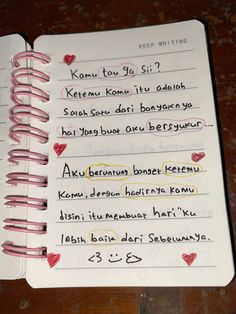 KEEP WRITING
Kamu tau ga sii?
Ketemu Kamu itu adalah
Salah Satu dari banyaknya
hal Yang buat Aku bersyukur...
Aku beruntung banget Ketemu
Kamu, dengan hadirnya Kamu
disini itu membuat hari"ku
lebih baik dari Sebelumnya.
<3 :) <3